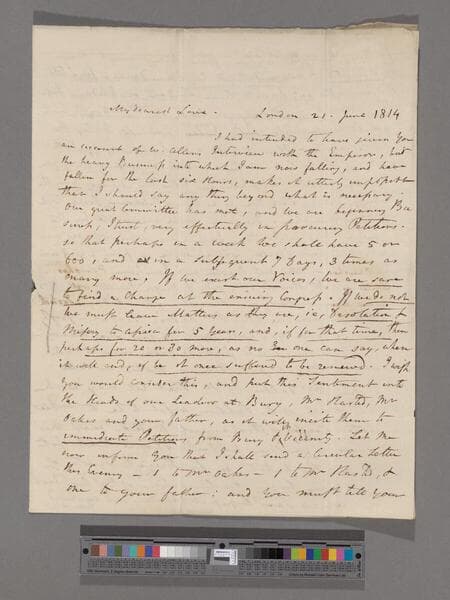 My dearest Love. London 21. June 1814
I had intended to have given You
an account of W. Allens Interview with the Emperor, but
the heavy Business into which I am now falling, and have
fallen for the last six Hours, makes it utterly impossible
that I should say any thing beyond what is necessary.
Our great Committee has met, and we are beginning Bu
siness, I trust, very effectually in procuring Petitions.
so that perhaps in a week we shall have 5 or
600, and in a subsequent 7 Days, 3 times as
many more. If we exert our Voices, we are sure
to find a Change at the ensuing Congress. If we do not
we must leave Matters as they are, ie, Desolation &
Misery to Africa for 5 Years, and, if for that time, then
perhaps for 20 or 30 more, as no one can say, when
it will end, if be it once suffered to be renewed. I wish
you would consider this, and put this Sentiment into
the Heads of our Leaders at Bury, Mr Hasted, Mr
Oakes and your father, as it will incite them to
immediate Petitions from Bury & Vicinity. Let me
now inform You that I shall send a Circular Letter
this Evening — 1 to Mr Oakes — 1 to Mr Hasted, &
one to your father: and you must tell your